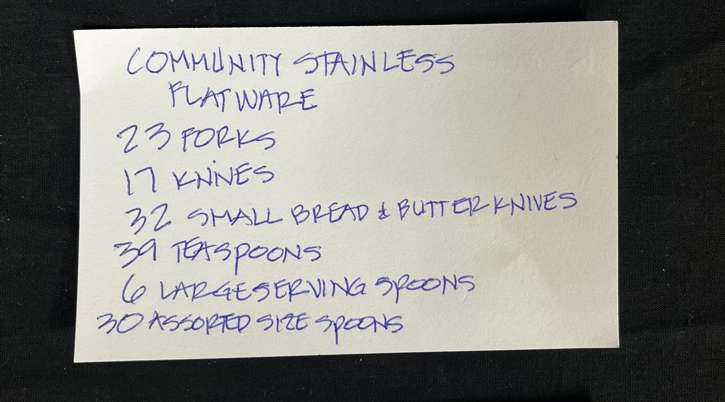 COMMUNITY STAINLESS
FLATWARE
23 FORKS
17 KNIVES
32 SMALL BREAD & BUTTER KNIVES
39 TEASPOONS
6 LARGE SERVING SPOONS
30 ASSORTED SIZE SPOONS